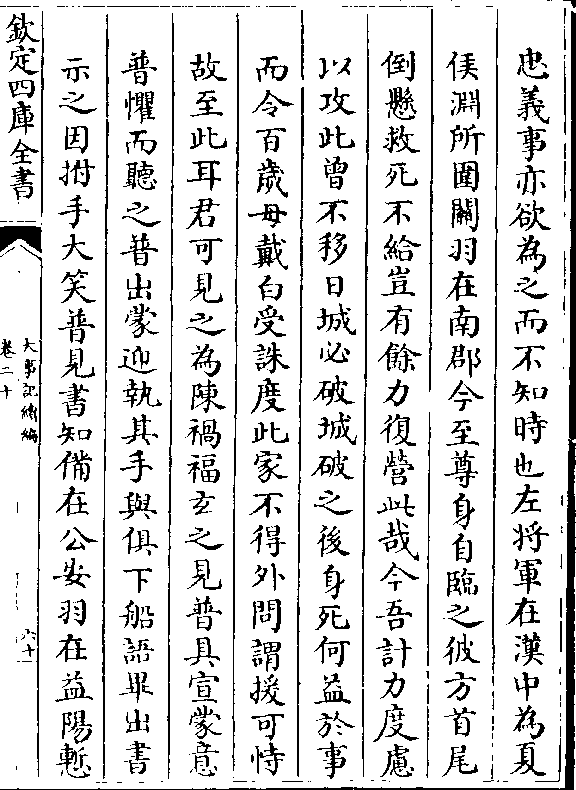 忠義事亦欲為之而不知時也左將軍在漢中為夏
侯淵所圍關羽在南郡今至尊身自臨之彼方首尾
倒懸救死不給豈有餘力復營此哉今吾計力度慮
以攻此曾不移日城必破城破之後身死何益於事
而令百歲母戴白受誅度此家不得外問謂援可恃
故至此耳君可見之為陳禍福玄之見普具宣蒙意
普懼而聽之普出蒙迎執其手與俱下船語畢出書
示之因拊手大笑普見書知備在公安羽在益陽慙
欽定四庫全書
大事記續編
卷二十
六十